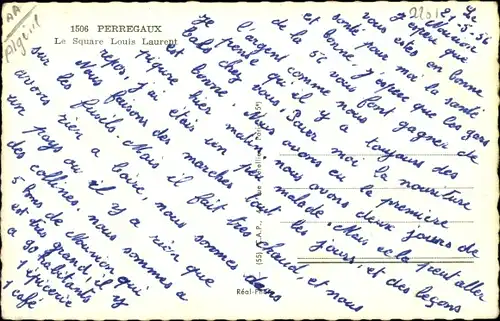 AA
Algérie
1506 PERREGAUX
Le Square Louis Laurent
Le
5.56
Mauvion
J'espère que
vous estes en bonne
et santé pour moi la santé
est bonne, j'espère que les gars
de la 56 vous font gagner de
l'argent comme il nous
Je pense qu'il y a toujours des
bals chez vous. Pour moi la nourriture
est bonne. Nous avons eu la première
piqure hier matin, nous avons deux jours de
repos, j'ai étais un peu malade. Mais ce la peut aller
Nous faisons des marches tout les jours, et des leçons
sur les fusils. Mais il fait très chaud, et nous
avons rien a boire, nous sommes dans
un pays ou il y a rien que
des collines. nous sommes a
5 kms de Mauvion qui
est très grand, il y
a 30 habitants
1 épicerie
1 café
Réal-Photo